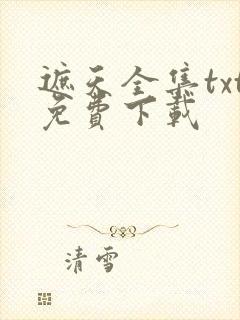 遮天全集txt
免費下載
清雪